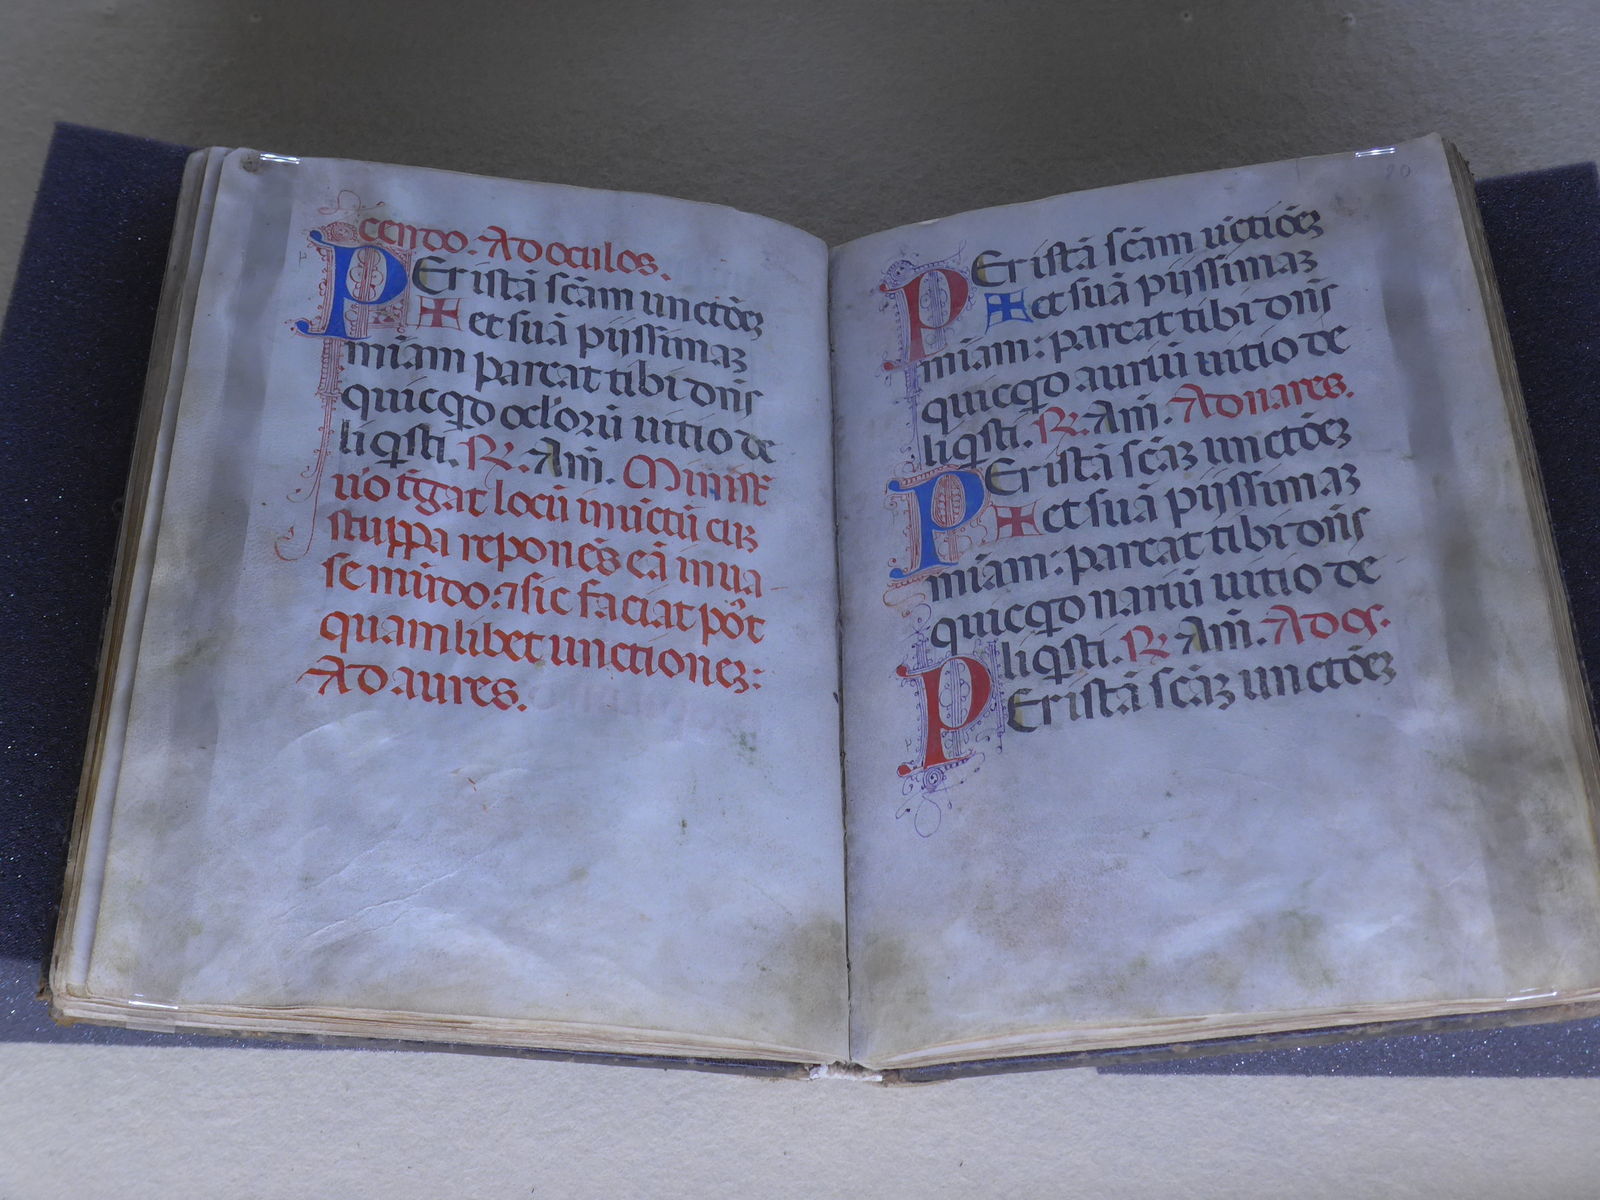 cendo. Ad oculos.
PEr istā scām unctōeꝫ
✠ et suā pijssimaꝫ
miam parcat tibi dn̄s
quicqd oclorū uitio de
liqisti. ℞. Am̄. Minist
uō tḡat locū inūctū cuꝫ
stuppa reponēs eā in ua
se mūdo: ⁊ sic faciat pōt
quamlibet unctioneꝫ:
Ad aures.
PEr istā scām ūctiōeꝫ
✠ et suā pijssimaꝫ
miam: parcat tibi dn̄s
quicqd auriū uitio de
liqisti. ℞. Am̄. Ad nares.
PEr istā scāꝫ unctōeꝫ
✠ et suā pijssimaꝫ
miam: parcat tibi dn̄s
quicqd nariū uitio de
liqisti. ℞. Am̄. Ad os.
PEr istā scāꝫ unctōeꝫ